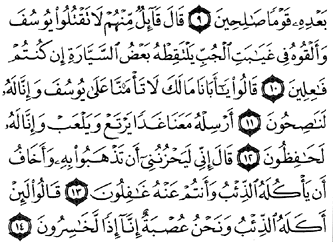 بَعْدِهِۦ قَوْمًا صَٰلِحِينَ ٩ قَالَ قَآئِلٌ مِّنْهُمْ لَا تَقْتُلُوا۟ يُوسُفَ
وَأَلْقُوهُ فِى غَيَٰبَتِ ٱلْجُبِّ يَلْتَقِطْهُ بَعْضُ ٱلسَّيَّارَةِ إِن كُنتُمْ
فَٰعِلِينَ ١٠ قَالُوا۟ يَٰٓأَبَانَا مَالَكَ لَا تَأْمَ۫نَّا عَلَىٰ يُوسُفَ وَإِنَّا لَهُۥ
لَنَٰصِحُونَ ١١ أَرْسِلْهُ مَعَنَا غَدًا يَرْتَعْ وَيَلْعَبْ وَإِنَّا لَهُۥ
لَحَٰفِظُونَ ١٢ قَالَ إِنِّى لَيَحْزُنُنِىٓ أَن تَذْهَبُوا۟ بِهِۦ وَأَخَافُ
أَن يَأْكُلَهُ ٱلذِّئْبُ وَأَنتُمْ عَنْهُ غَٰفِلُونَ ١٣ قَالُوا۟ لَئِنْ
أَكَلَهُ ٱلذِّئْبُ وَنَحْنُ عُصْبَةٌ إِنَّآ إِذًا لَّخَٰسِرُونَ ١٤